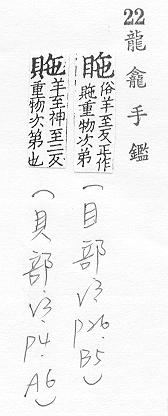 22 龍龕手鑑
俗羊至反正作
重物次第
(目部.V3
P26.B5)
羊至神至二反
重物次第也
(貝部.V3.
P4.
A6)